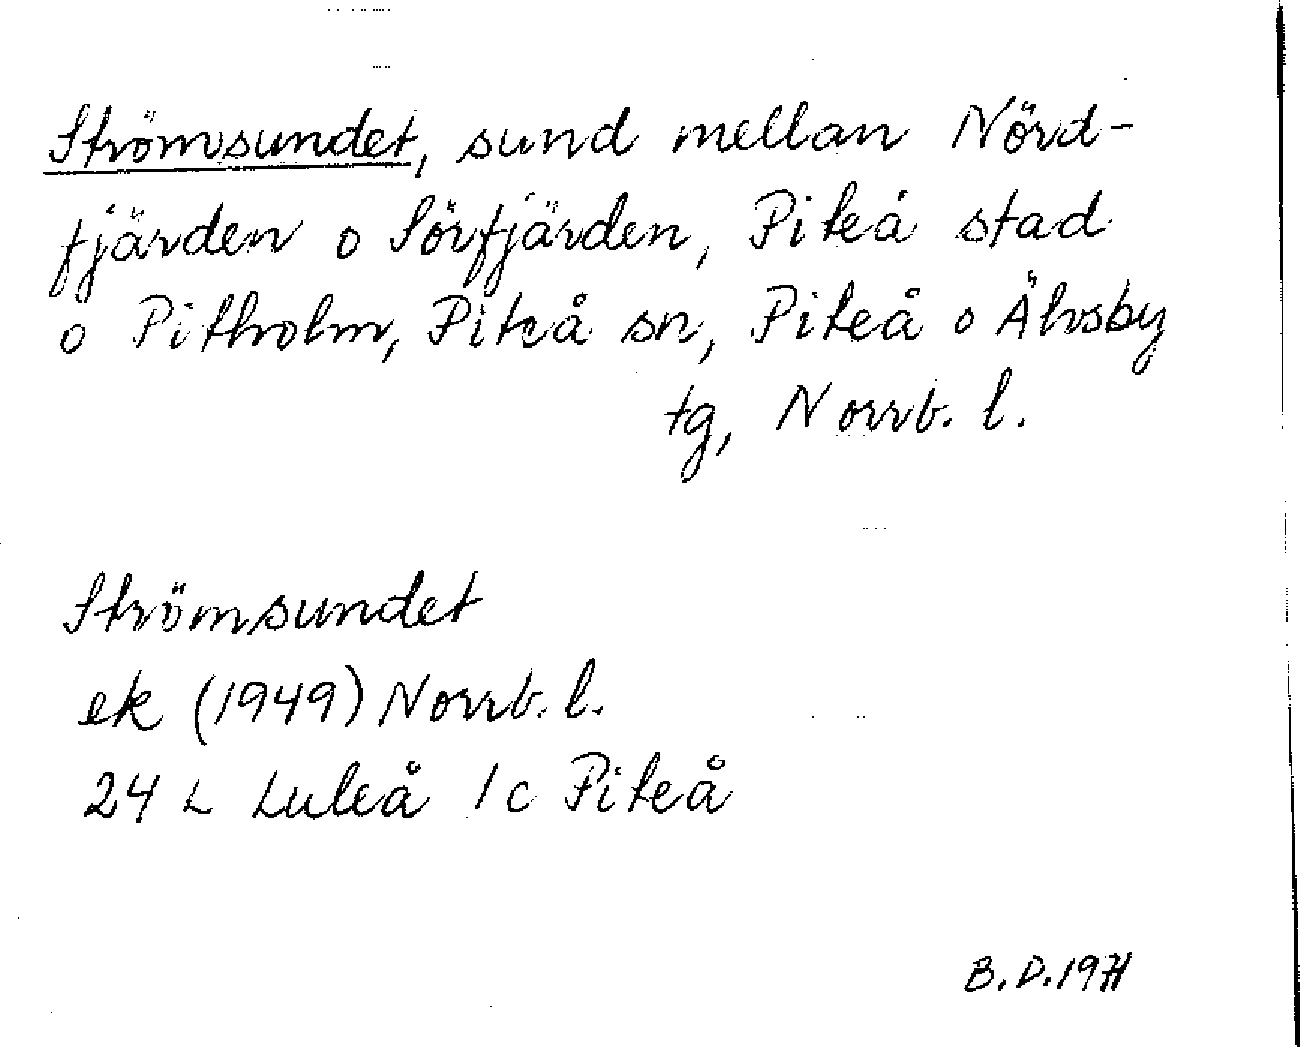 Strömsundet, sund mellan Nörd-
fjärden o Sörfjärden, Piteå stad
o Pitholm, Piteå sn, Piteå o Älvsby
tg, Norrb. l.
Strömsundet
ek (1949) Norrb. l.
24 L Luleå 1c Piteå
B.D.1971